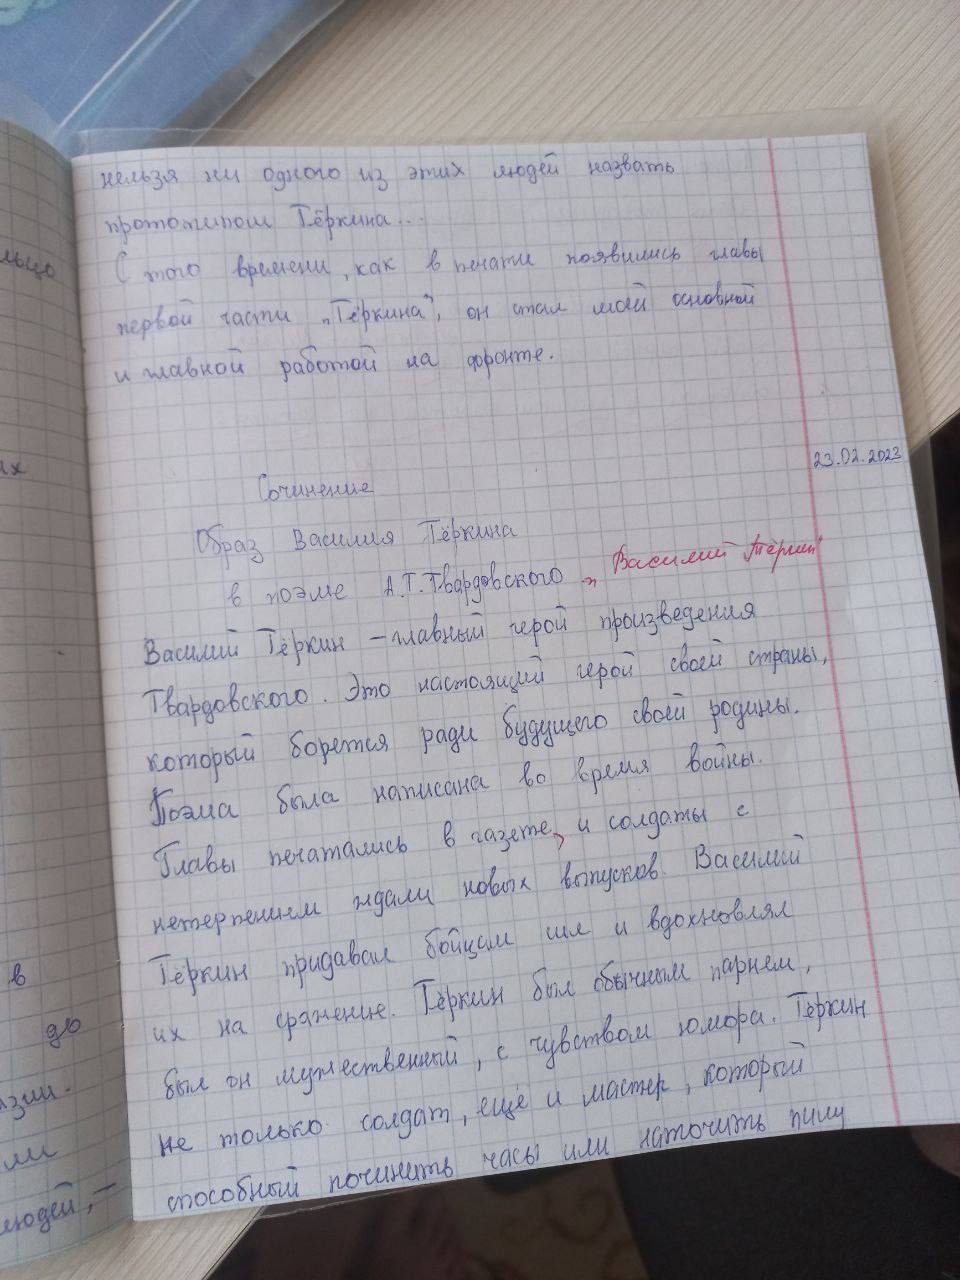 нельзя ни одного из этих людей назвать
прототипом Тёркина...
С того времени, как в печати появились главы
первой части „Тёркина", он стал моей основной
и главной работой на фронте.
23.02.2023
Сочинение
Образ Василия Тёркина
в поэме А.Т.Твардовского „Василий Тёркин"
Василий Тёркин – главный герой произведения
Твардовского. Это настоящий герой своей страны,
который борется ради будущего своей родины.
Поэма была написана во время войны.
Главы печатались в газете, и солдаты с
нетерпением ждали новых выпусков. Василий
Тёркин придавал бойцам сил и вдохновлял
их на сражение. Тёркин был обычным парнем,
был он мужественный, с чувством юмора. Тёркин
не только солдат, ещё и мастер, который
способный починить часы или наточить пилу
ях
в
до
азии.
ли
людей, –